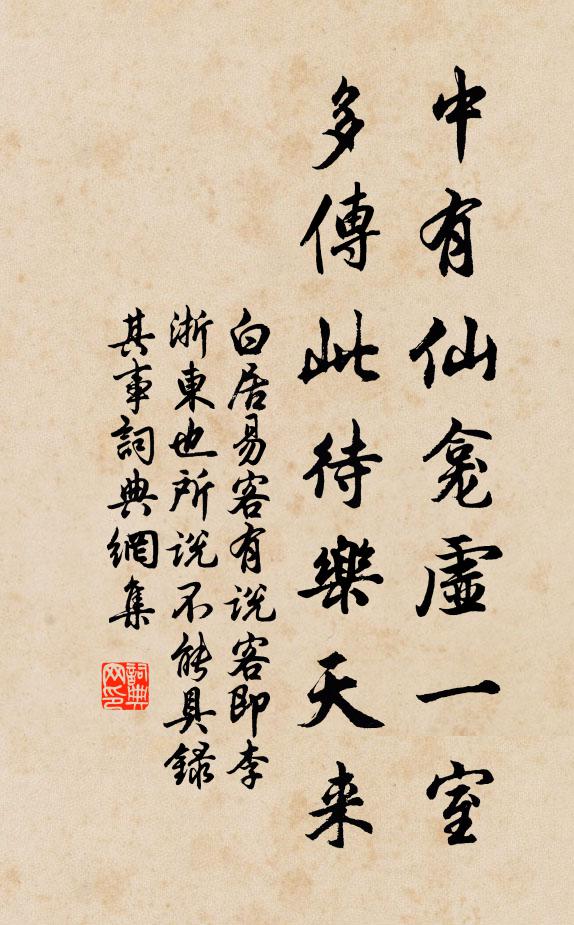 中有仙龛虛一室
多傳此待樂天来
白居易客有说客即李
浙東也所说不能具録
其事詞典網集
詞典網印